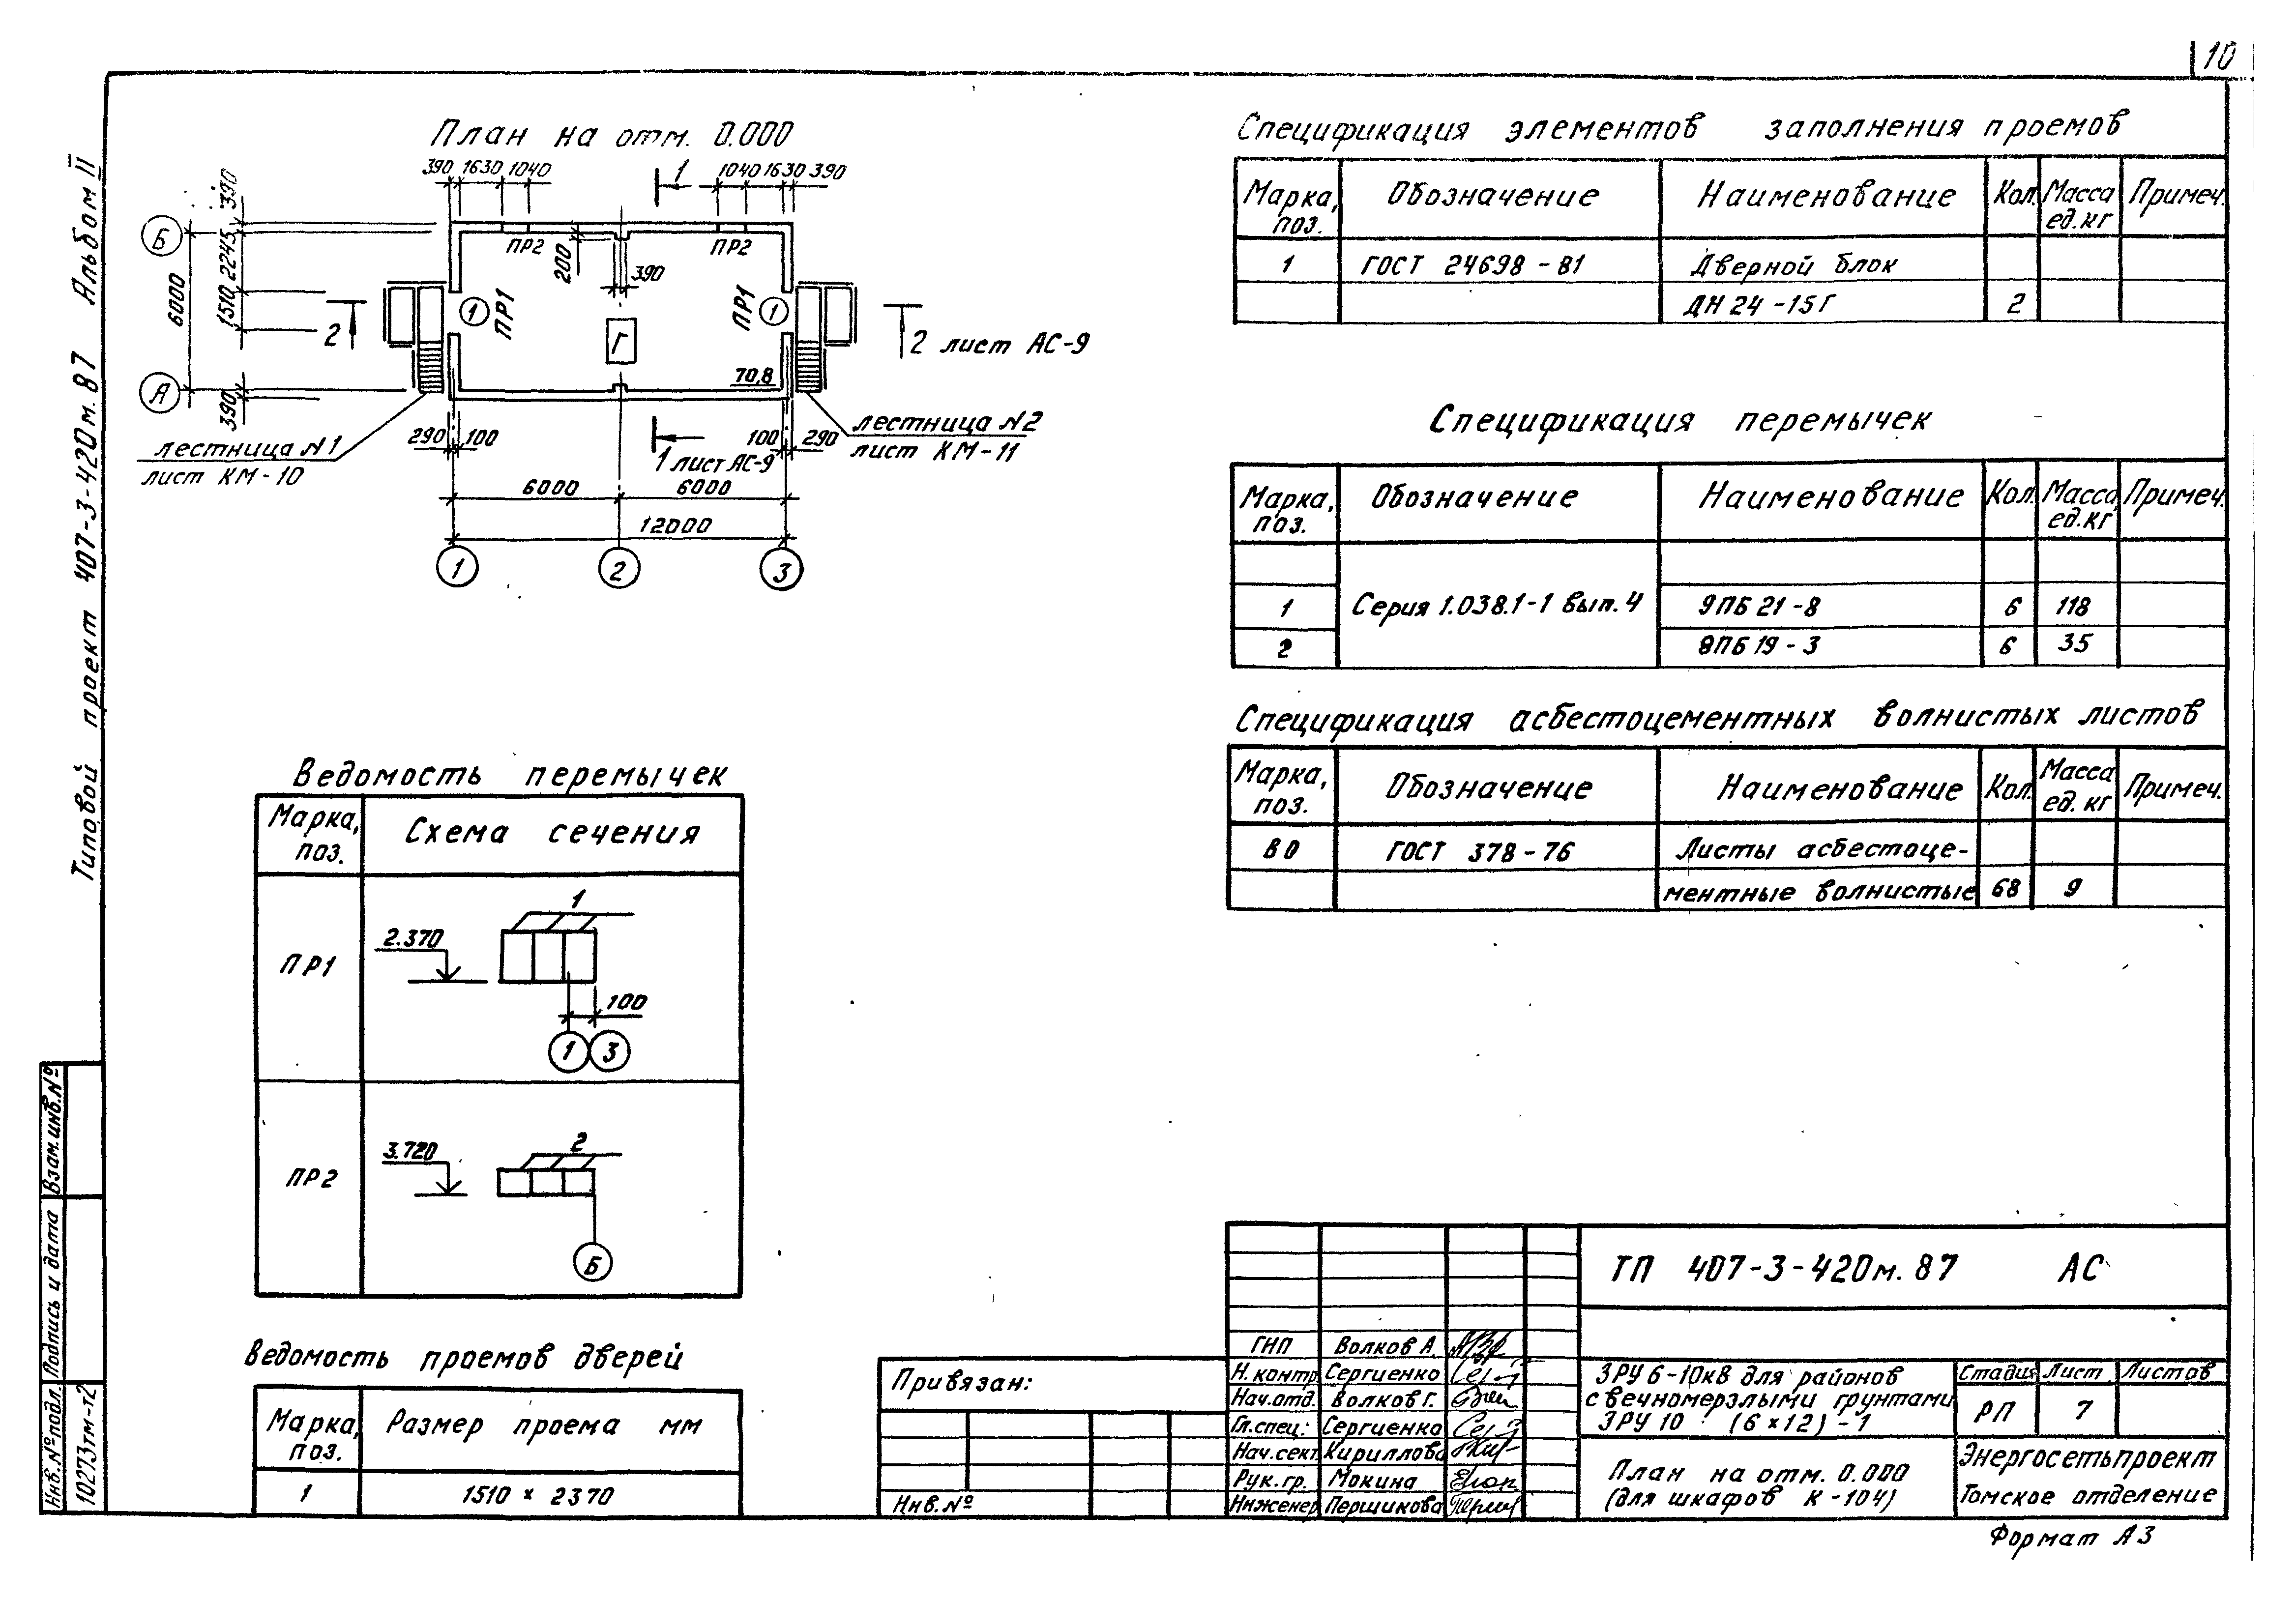 10
Типовой проект 407-3-420м.87 Альбом II
План на отм. 0.000
390 1630 1040
1
1040 1630 390
390
Б
ПР2
ПР2
200
390
2245
6000
1510
2
1
ПР1
ПР1
1
2 лист АС-9
Г
А
70,8
390
лестница N1
лист КМ-10
290 100
100 290
лестница N2
лист КМ-11
1 лист АС-9
6000 6000
12000
1 2 3
Спецификация элементов заполнения проемов
Марка, поз. Обозначение Наименование Кол. Масса ед.кг Примеч.
1 ГОСТ 24698-81 Дверной блок
ДН 24-15Г 2
Спецификация перемычек
Марка, поз. Обозначение Наименование Кол. Масса ед.кг Примеч.
1 Серия 1.038.1-1 вып.4 9ПБ 21-8 6 118
2 8ПБ 19-3 6 35
Спецификация асбестоцементных волнистых листов
Марка, поз. Обозначение Наименование Кол. Масса ед.кг Примеч.
ВО ГОСТ 378-76 Листы асбестоце-
ментные волнистые 68 9
Ведомость перемычек
Марка, поз. Схема сечения
ПР1
2.370
1
100
1 3
ПР2
3.720
2
Б
Ведомость проемов дверей
Марка, поз. Размер проема мм
1 1510 × 2370
Взам.инв.№
Подпись и дата
Инв.№подл.
10273тм-т2
Привязан:
Инв.№
ТП 407-3-420м.87 АС
ГИП Волков А.
Н.контр. Сергиенко
Нач.отд. Волков Г.
Гл.спец. Сергиенко
Нач.сект. Кириллова
Рук.гр. Мокина
Инженер Першикова
ЗРУ 6-10кВ для районов
с вечномерзлыми грунтами
ЗРУ 10 (6×12)-1
Стадия Лист Листов
РП 7
План на отм. 0.000
(для шкафов К-104)
Энергосетьпроект
Томское отделение
Формат А3